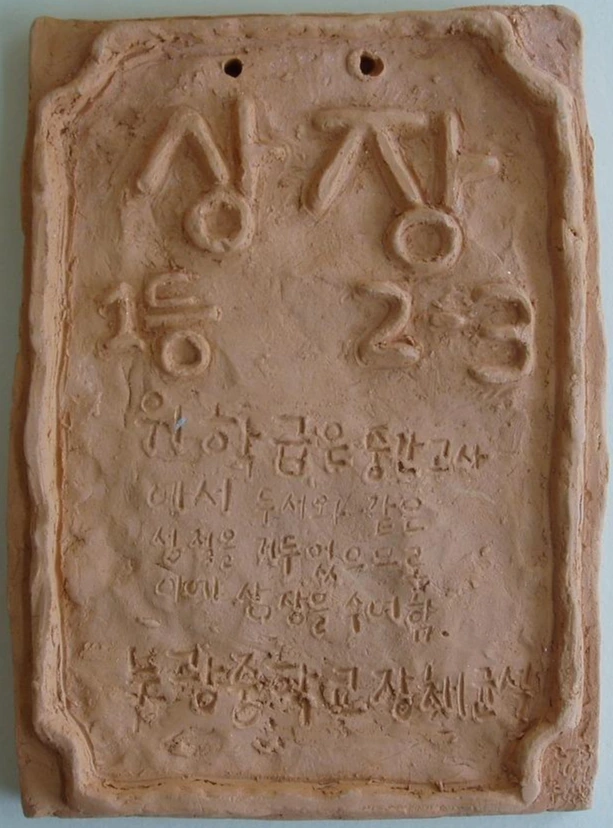 상장
1등 2-3
원 학급은 중간고사
에서 두서와 같은
성적을 거두었으므로
이에 상장을 수여함.
중학교장